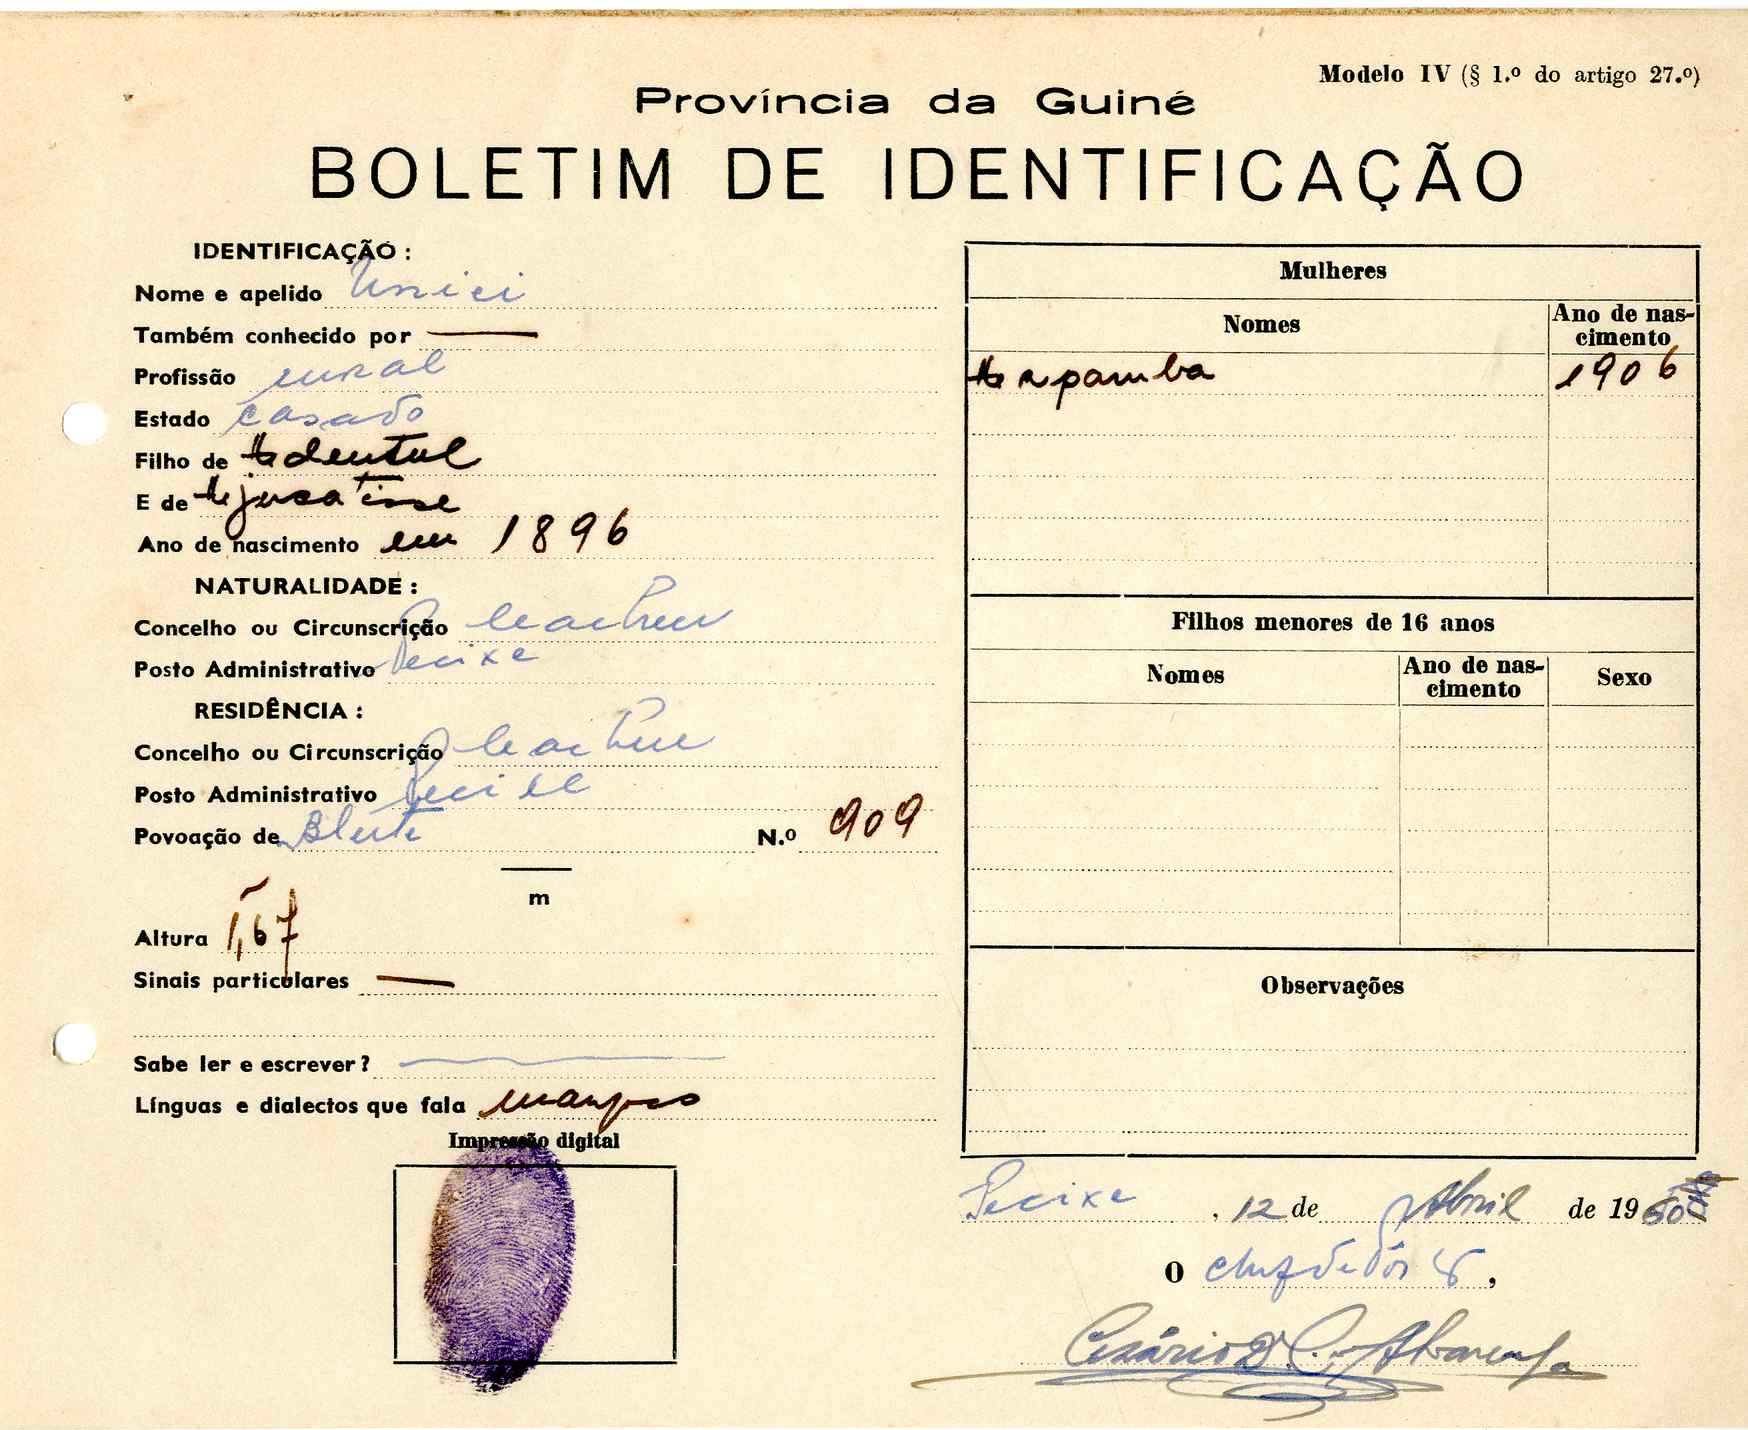 Modelo IV (§ 1.º do artigo 27.º)
Província da Guiné
BOLETIM DE IDENTIFICAÇÃO
IDENTIFICAÇÃO :
Nome e apelido Unici
Também conhecido por —
Profissão rural
Estado casado
Filho de
E de
Ano de nascimento em 1896
NATURALIDADE :
Concelho ou Circunscrição Cacheu
Posto Administrativo Pecixe
RESIDÊNCIA :
Concelho ou Circunscrição Cacheu
Posto Administrativo Pecixe
Povoação de N.º 909
m
Altura 1,67
Sinais particulares —
Sabe ler e escrever ? —
Línguas e dialectos que fala
Impressão digital
Mulheres
Nomes Ano de nas-
cimento
1906
Filhos menores de 16 anos
Nomes Ano de nas-
cimento Sexo
Observações
Pecixe , 12 de Abril de 1960
O ,
Cesário